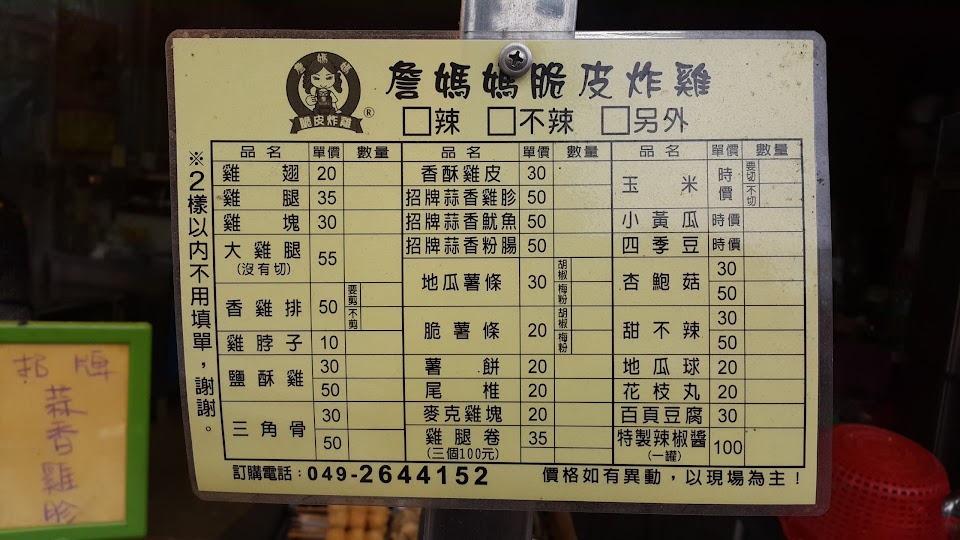 詹媽媽
脆皮炸雞
®
詹媽媽脆皮炸雞
□辣 □不辣 □另外
※2樣以內不用填單，謝謝。
品名 單價 數量
雞翅 20
雞腿 35
雞塊 30
大雞腿 55
(沒有切)
香雞排 50 要剪 不剪
雞脖子 10
鹽酥雞 30
50
三角骨 30
50
品名 單價 數量
香酥雞皮 30
招牌蒜香雞胗 50
招牌蒜香魷魚 50
招牌蒜香粉腸 50
地瓜薯條 30 胡椒 梅粉
脆薯條 20 胡椒 梅粉
薯餅 20
尾椎 20
麥克雞塊 20
雞腿卷 35
(三個100元)
品名 單價 數量
玉米 時價 要切 不切
小黃瓜 時價
四季豆 時價
杏鮑菇 30
50
甜不辣 30
50
地瓜球 20
花枝丸 20
百頁豆腐 30
特製辣椒醬 100
(一罐)
訂購電話：049-2644152 價格如有異動，以現場為主！
招牌
蒜香雞胗